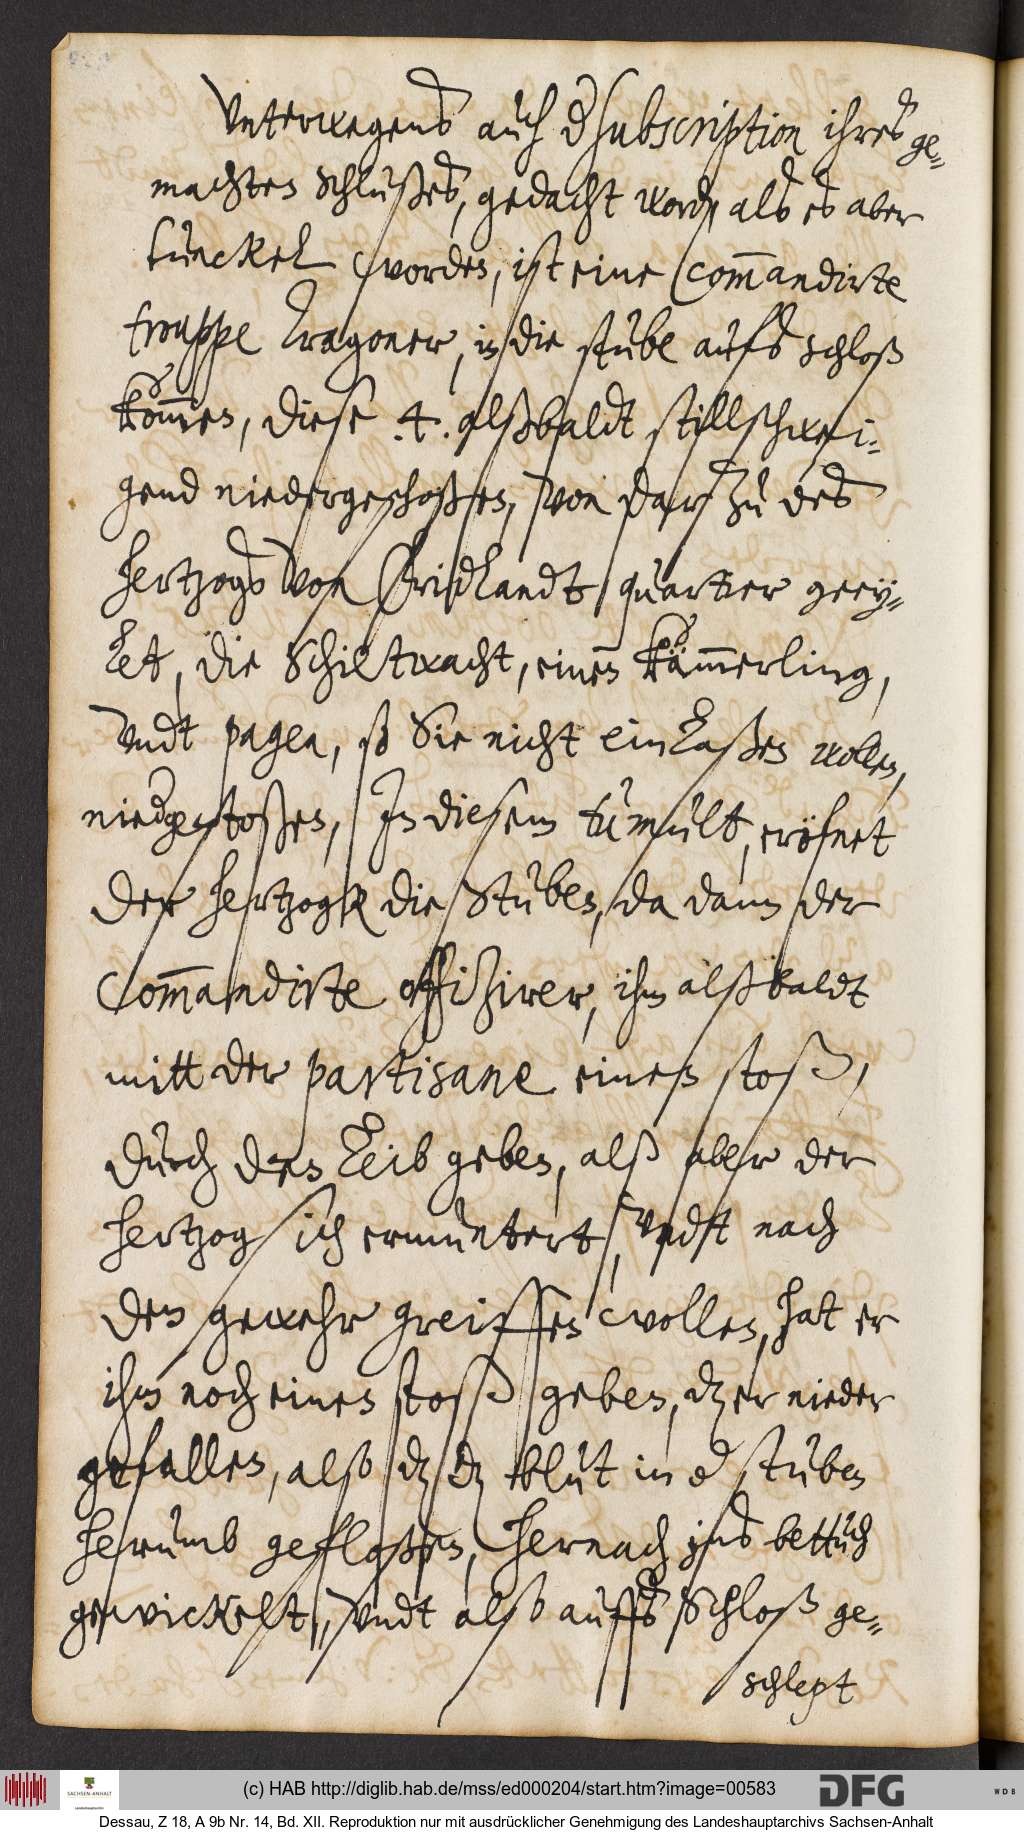 Vnterwegens auch d subscription ihres ge-
machten schlußes, gedacht worden als es aber
tunckel worden, ist eine Commandirte
trouppe Tragoner, in die stube aufs schloß
kommen, diese .4. alßbaldt stillschwei-
gend niedergeschoßen, von dar zu des
hertzogs von Fridlandt quartier geey-
let, die Schiltwacht, einen kämmerling,
vndt pagen, so Sie nicht einlaßen wollen,
niedergestoßen, In diesem tumult, eröfnet
der hertzogk die Stuben, da dann der
Commandirte offizirer, ihm alßbaldt
mitt der partisane einen stoß,
durch den Leib geben, alß aber der
hertzog sich ermuntert, vndt nach
den gewehr greiffen wollen, hat er
ihm noch einen stoß geben, dz er nieder
gefallen, also dz dz blut in d stuben
herumb gefloßen, hernach ins bettuch
gewickelt, vndt also auffs Schloß ge-
schlept
(c) HAB http://diglib.hab.de/mss/ed000204/start.htm?image=00583
SACHSEN-ANHALT
Landeshauptarchiv
DFG
WDB
Dessau, Z 18, A 9b Nr. 14, Bd. XII. Reproduktion nur mit ausdrücklicher Genehmigung des Landeshauptarchivs Sachsen-Anhalt